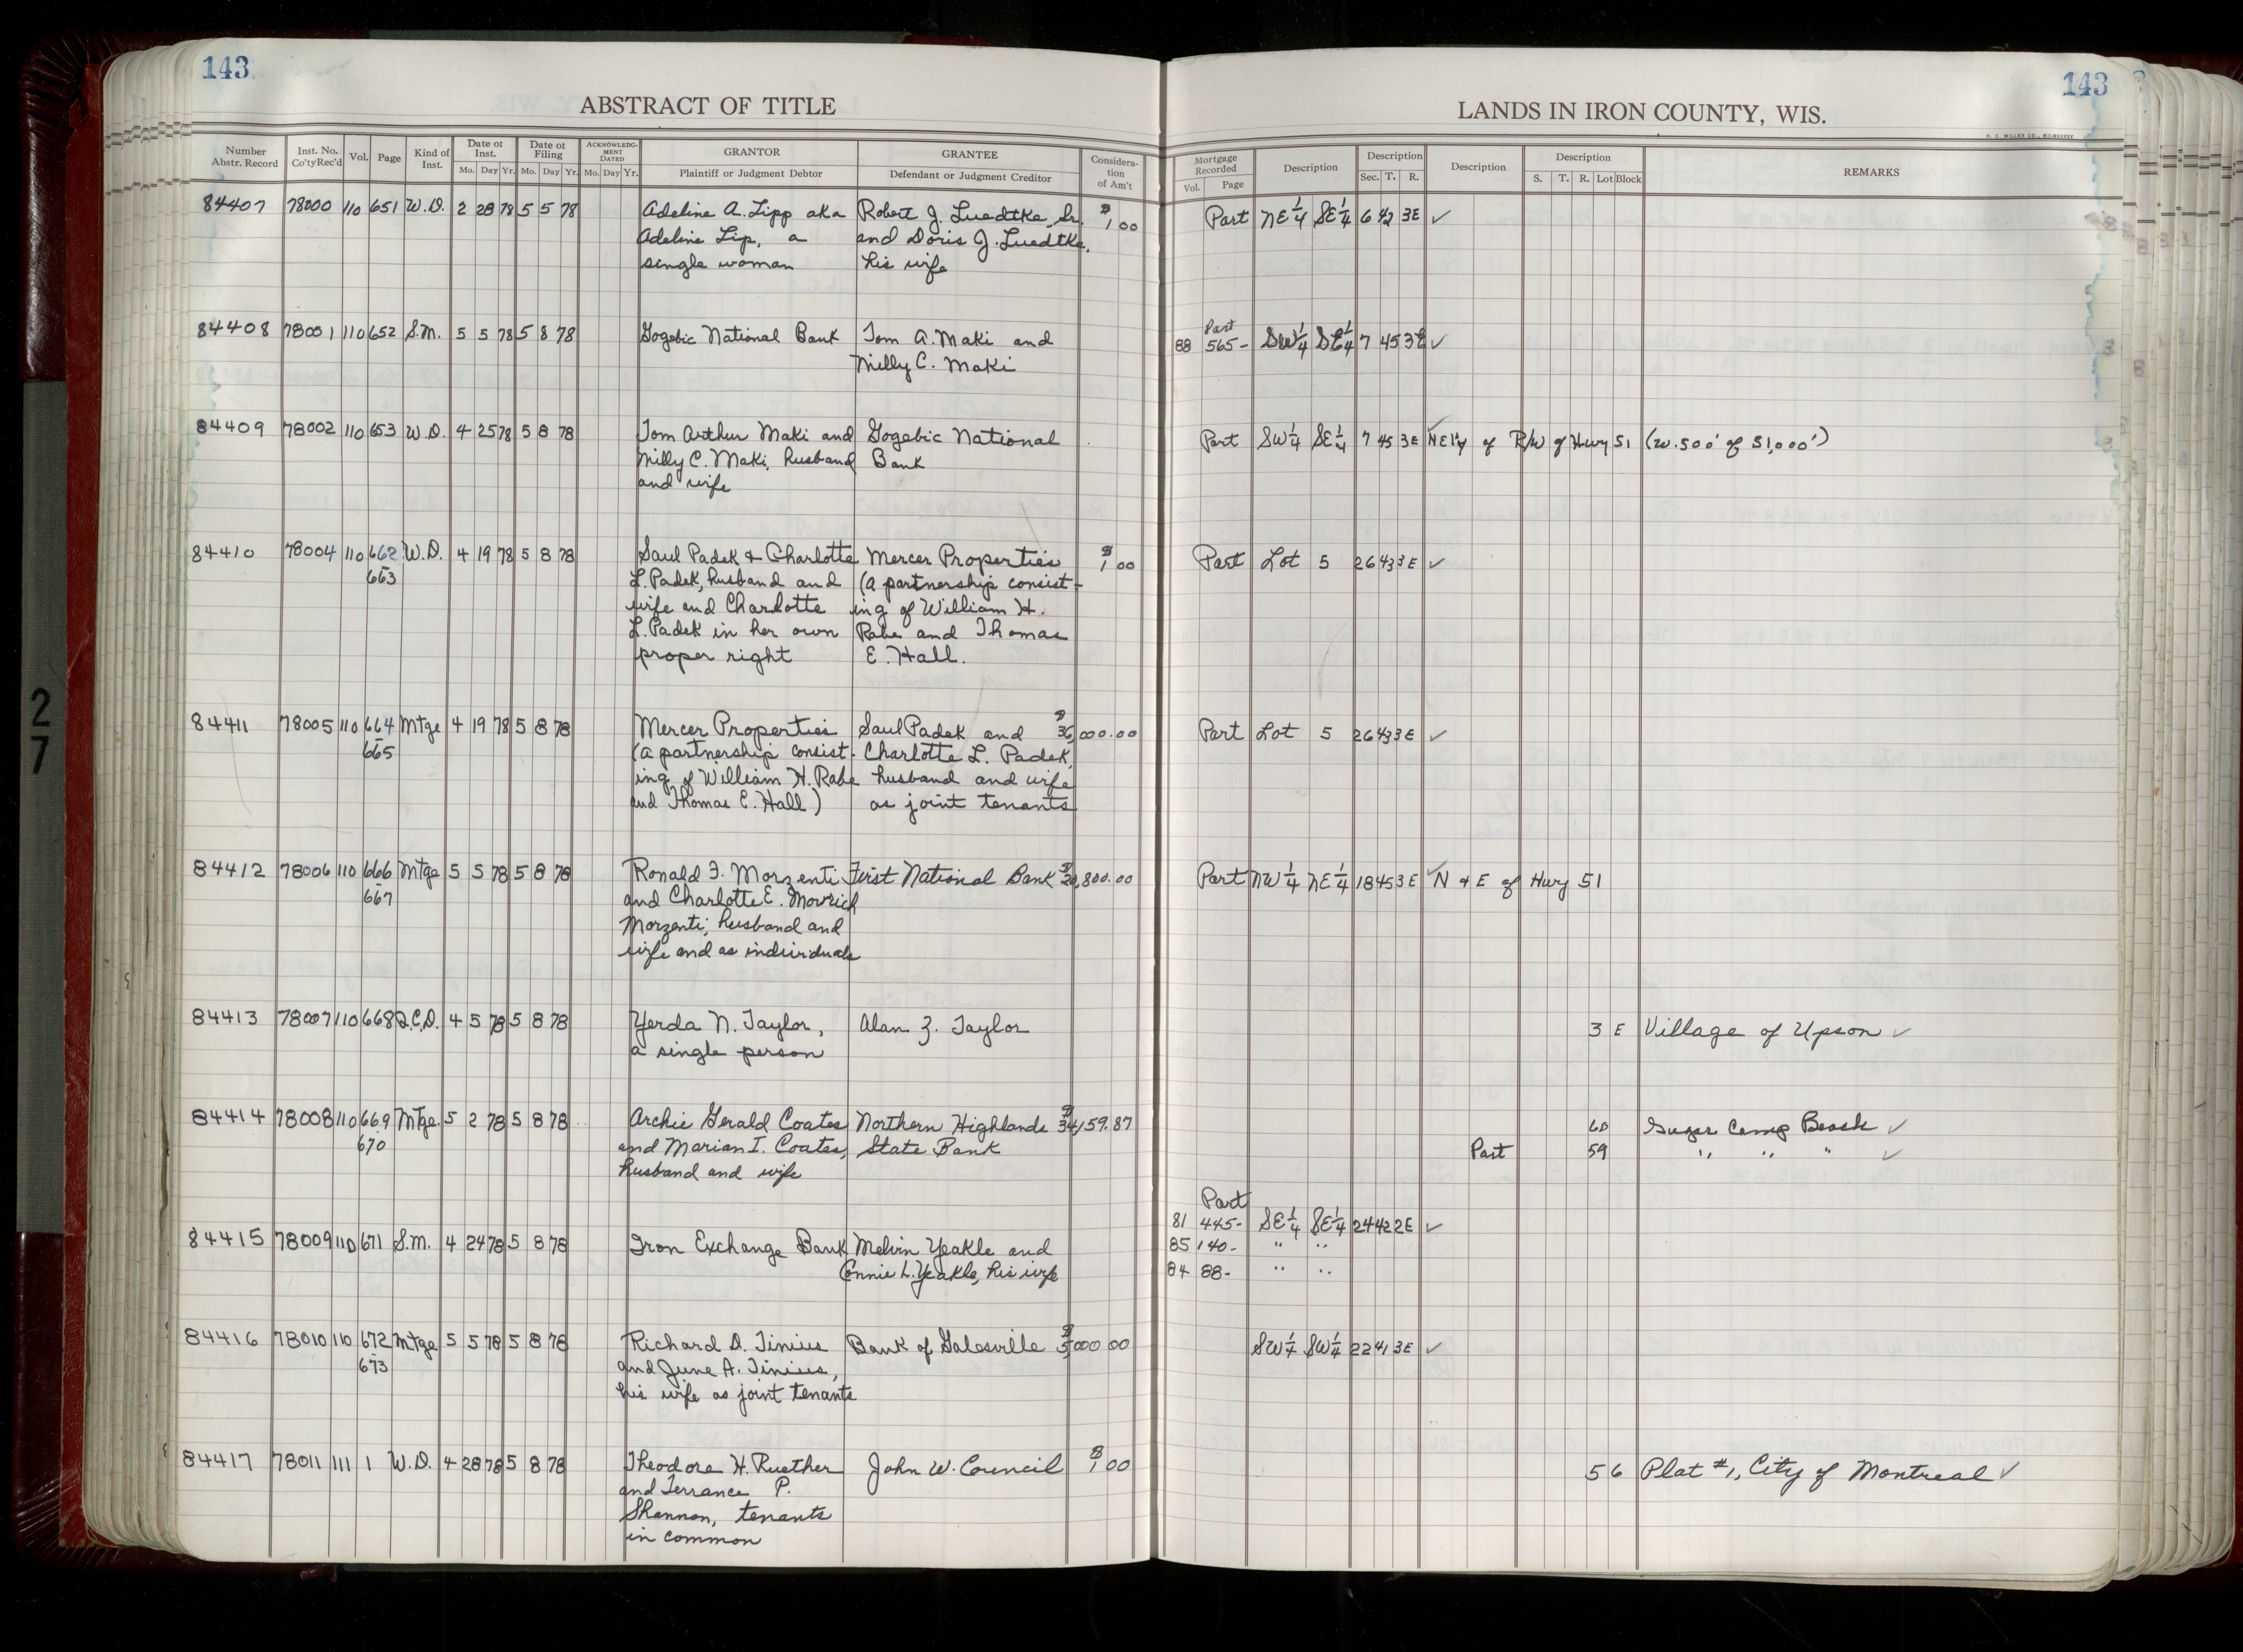 143
143
ABSTRACT OF TITLE
LANDS IN IRON COUNTY, WIS.
H. C. MILLER CO., MILWAUKEE
Number Abstr. Record | Inst. No. Co'ty Rec'd | Vol. | Page | Kind of Inst. | Date of Inst. Mo. Day Yr. | Date of Filing Mo. Day Yr. | ACKNOWLEDGMENT DATED Mo. Day Yr. | GRANTOR Plaintiff or Judgment Debtor | GRANTEE Defendant or Judgment Creditor | Consideration of Am't | Mortgage Recorded Vol. Page | Description | Description Sec. T. R. | Description | Description S. T. R. Lot Block | REMARKS
84407 78000 110 651 W.D. 2 28 78 5 5 78 Adeline A. Lipp aka Robert J. Luedtke, Sr. $1 00 Part NE 1/4 SE 1/4 6 42 3E ✓
Adeline Lip, a and Doris J. Luedtke,
single woman his wife
Part
84408 78001 110 652 S.M. 5 5 78 5 8 78 Gogebic National Bank Tom A. Maki and 88 565- SW 1/4 SE 1/4 7 45 3E ✓
Milly C. Maki
84409 78002 110 653 W.D. 4 25 78 5 8 78 Tom Arthur Maki and Gogebic National Part SW 1/4 SE 1/4 7 45 3E ✓ NE'ly of R/W of Hwy 51 (W. 500' of S1,000')
Milly C. Maki, husband Bank
and wife
84410 78004 110 662 W.D. 4 19 78 5 8 78 Saul Padek & Charlotte Mercer Properties $1 00 Part Lot 5 26 43 3E ✓
-663 L. Padek, husband and (a partnership consist-
wife and Charlotte ing of William H.
L. Padek in her own Rabe and Thomas
proper right E. Hall.
84411 78005 110 664 Mtge 4 19 78 5 8 78 Mercer Properties Saul Padek and $36,000.00 Part Lot 5 26 43 3E ✓
-665 (a partnership consist- Charlotte L. Padek,
ing of William H. Rabe husband and wife
and Thomas E. Hall) as joint tenants
84412 78006 110 666 Mtge 5 5 78 5 8 78 Ronald F. Morzenti First National Bank $20,800.00 Part NW 1/4 NE 1/4 18 45 3E ✓ N & E of Hwy 51
-667 and Charlotte E.
Morzenti, husband and
wife and as individuals
84413 78007 110 668 Q.C.D. 4 5 78 5 8 78 Yerda N. Taylor, Alan Z. Taylor 3 E Village of Upson ✓
a single person
84414 78008 110 669 Mtge. 5 2 78 5 8 78 Archie Gerald Coates Northern Highlands $34,159.87 60 Sugar Camp Beach ✓
670 and Marian I. Coates, State Bank Part 59 " " " ✓
husband and wife
Part
81 445- SE 1/4 SE 1/4 24 42 2E ✓
84415 78009 110 671 S.M. 4 24 78 5 8 78 Iron Exchange Bank Melvin Yeakle and 85 140- " "
Connie L. Yeakle, his wife 84 88- " "
84416 78010 110 672 Mtge 5 5 78 5 8 78 Richard D. Tinius Bank of Galesville $5,000 00 SW 1/4 SW 1/4 22 41 3E ✓
-673 and June A. Tinius,
his wife as joint tenants
84417 78011 111 1 W.D. 4 28 78 5 8 78 Theodore H. Ruether John W. Council $1 00 5 6 Plat #1, City of Montreal ✓
and Terrance P.
Shannon, tenants
in common
27